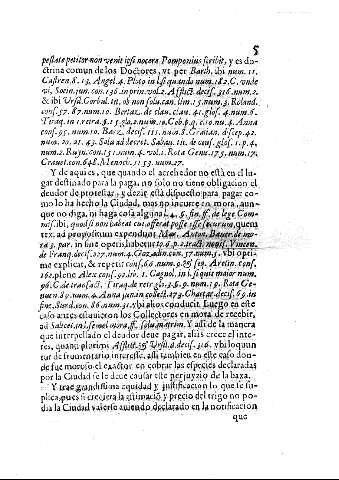 5
pestate petitor non venit ipsi nocere Pomponius scribit, y es do-
ctrina comun de los Doctores, vt per Barth. ibi num. 11.
Castren. 8. 13. Angel. 4. Plato in l. si quando num. 182. C. vnde
vi, Socin. jun. con. 136. in prin. vol. 2. Afflict. decis. 316. num. 2.
& ibi Vrsil. Corbul. tit. ob non solu. can. lim. 15. num. 3. Roland.
cons. 57. 87. num. 10. Bertaz. de clau. clau. 41. glos. 4. num. 8.
Tiraq. in 1. retra. §. 3. glo. 2. num. 10. Gob. p. q. c. 16. nu. 4. Anna
cons. 95. num. 10. Barz. decis. 111. num. 8. Gratian. discep. 42.
num. 20. 21. 43. Sola ad decret. Sabau. tit. de cauf. glos. 1. p. 4.
num. 2. Ruyn. con. 153. num. 4. vol. 1. Rota Genu. 175. num. 17.
Crauet. con. 648. Menoch. 1153. num. 27.
Y de aqui es, que quando el acrehedor no està en el lu-
gar destinado para la paga, no solo no tiene obligacion el
deudor de protestar, y dezir està dispuesto para pagar co-
mo lo ha hecho la Ciudad, mas no incurre en mora, aun-
que no diga, ni haga cosa alguna l. 4. §. fin. ff. de lege Com-
mis. ibi, quod si non habeat cui offerat posse esse securum, quem
tex. ad propositum expendunt Alex. Anton. Bauer de mo-
ra 3. par. in fine operis habetur to. 6. p. 2. tract. nouis. Vincen.
de Franq. decis. 027. num. 4. Gozadin. con. 37. num. 5. vbi opti-
me explicat, & repetit cons. 66. num. 9. & seq. Aretin. cons.
161. plene Alex. cons. 92. lib. 1. Cagnol. in l. si quit maior num.
96. C. de transact. Tiraq. de retr. glo. 3. 6. 9. num. 19. Rota Ge-
nu en. 89. num. 4. Anna jun. in collect. 473. Chartar. decis. 69. in
fin. Surd. con. 86. num. 19. vbi alios conducit. Luego en este
caso antes estuuieron los Collectores en mora de recebir,
ad Salicet. in l. si mel mora ff. solu. matrim. Y assi de la manera
que interpellado el deudor deue pagar, alias crece el inte-
res, quam pluribus Afflict. & Vrsil. d. decis. 316. vbi loquun
tur de frumentario interesse, assi tambien en este caso don-
de fue moroso el exactor en cobrar las especies declaradas
por la Ciudad se le deue causar este perjuyzio de la baxa.
Y trae grandissima equidad y justificacion lo que se su-
plica, pues si creciera la estimacion y precio del trigo no po-
dia la Ciudad valerse auiendo declarado en la notificacion
que